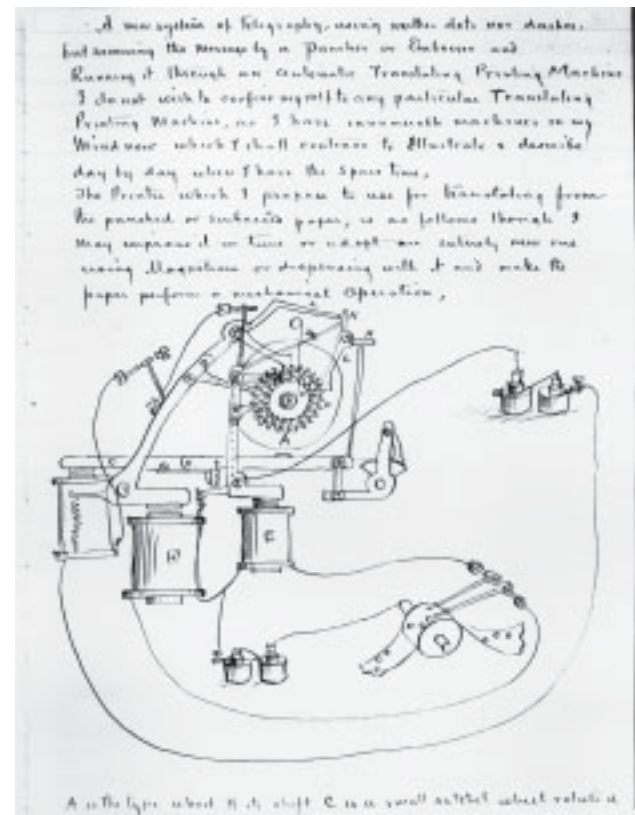 A new system of Telegraphy, using neither dots nor dashes.
but running the message by a Puncher or Embosser and
Running it through an Automatic Translating Printing Machine
I do not wish to confine myself to any particular Translating
Printing Machine, as I have innumerable machines in my
Mind now which I shall continue to Illustrate & describe
day by day when I have the spare time,
The Printer which I propose to use for translating from
the punched or embossed paper, is as follows though I
may improve it in time or adopt an entirely new one
using Magnetism or dispensing with it and make the
paper perform a mechanical Operation,
A is the type wheel its shaft C is a small ratchet wheel